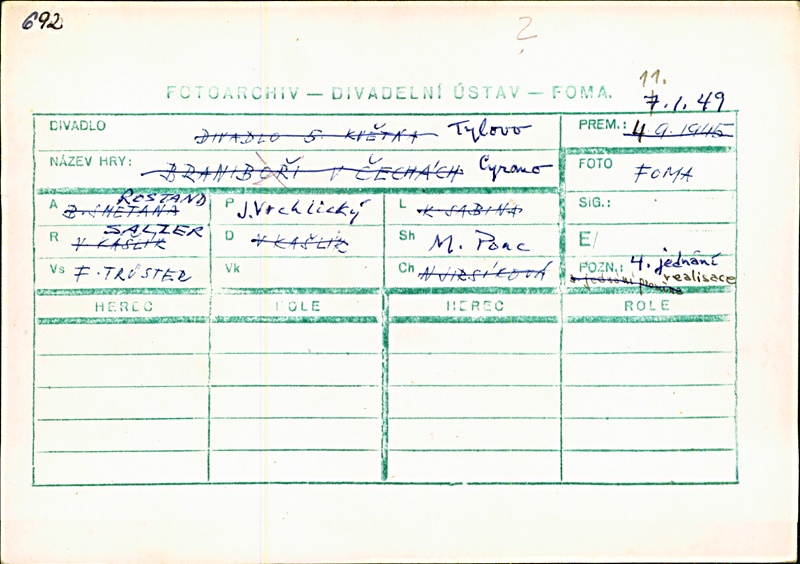 692
2
FOTOARCHIV — DIVADELNÍ ÚSTAV — FOMA.
11.
7.1.49
DIVADLO DIVADLO 5. KVĚTNA Tylovo PREM.: 4 9. 1945
NÁZEV HRY: BRANIBOŘI V ČECHÁCH Cyrano FOTO FOMA
ROSTAND
A B. SMETANA P J. Vrchlický L K. SABINA SIG.:
SALZER
R V. KAŠLÍK D V. KAŠLÍK Sh M. Ponc E/
Vs F. TRÖSTER Vk Ch N. JIRSÍKOVÁ POZN.: 4. jednání
realisace
HEREC ROLE HEREC ROLE